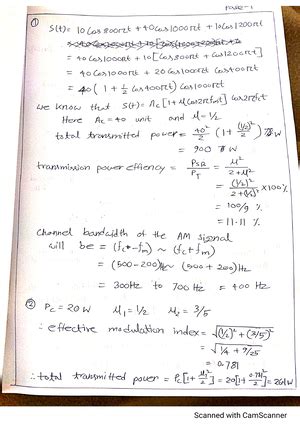 PART-1
①
S(t) = 10 Cos 800πt + 40 Cos 1000πt + 10 Cos 1200πt
= 40 Cos 1000πt + 10 [Cos 800πt + Cos 1200πt]
= 40 Cos 1000πt + 20 Cos 1000πt Cos 400πt
= 40 (1 + 1/2 Cos 400πt) Cos 1000πt
We know that S(t) = Ac [1 + μ Cos 2πfmt] Cos 2πfct
Here Ac = 40 unit and μ = 1/2
total transmitted power = 40²/2 (1 + (1/2)²/2) W
= 900 W
transmission power effiency = PSB/PT = μ²/2+μ²
= (1/2)²/2+(1/2)² × 100%
= 100/9 %
= 11.11 %
channel bandwidth of the AM signal
will be = (fc - fm) ~ (fc + fm)
= (500 - 200) Hz ~ (500 + 200) Hz
= 300 Hz to 700 Hz = 400 Hz
② Pc = 20 W μ1 = 1/2 μ2 = 3/5
∴ effective modulation index = √(1/2)² + (3/5)²
= √1/4 + 9/25
= 0.781
∴ total transmitted power = Pc [1 + μ²/2] = 20 [1 + 0.781²/2] = 26.1 W
Scanned with CamScanner